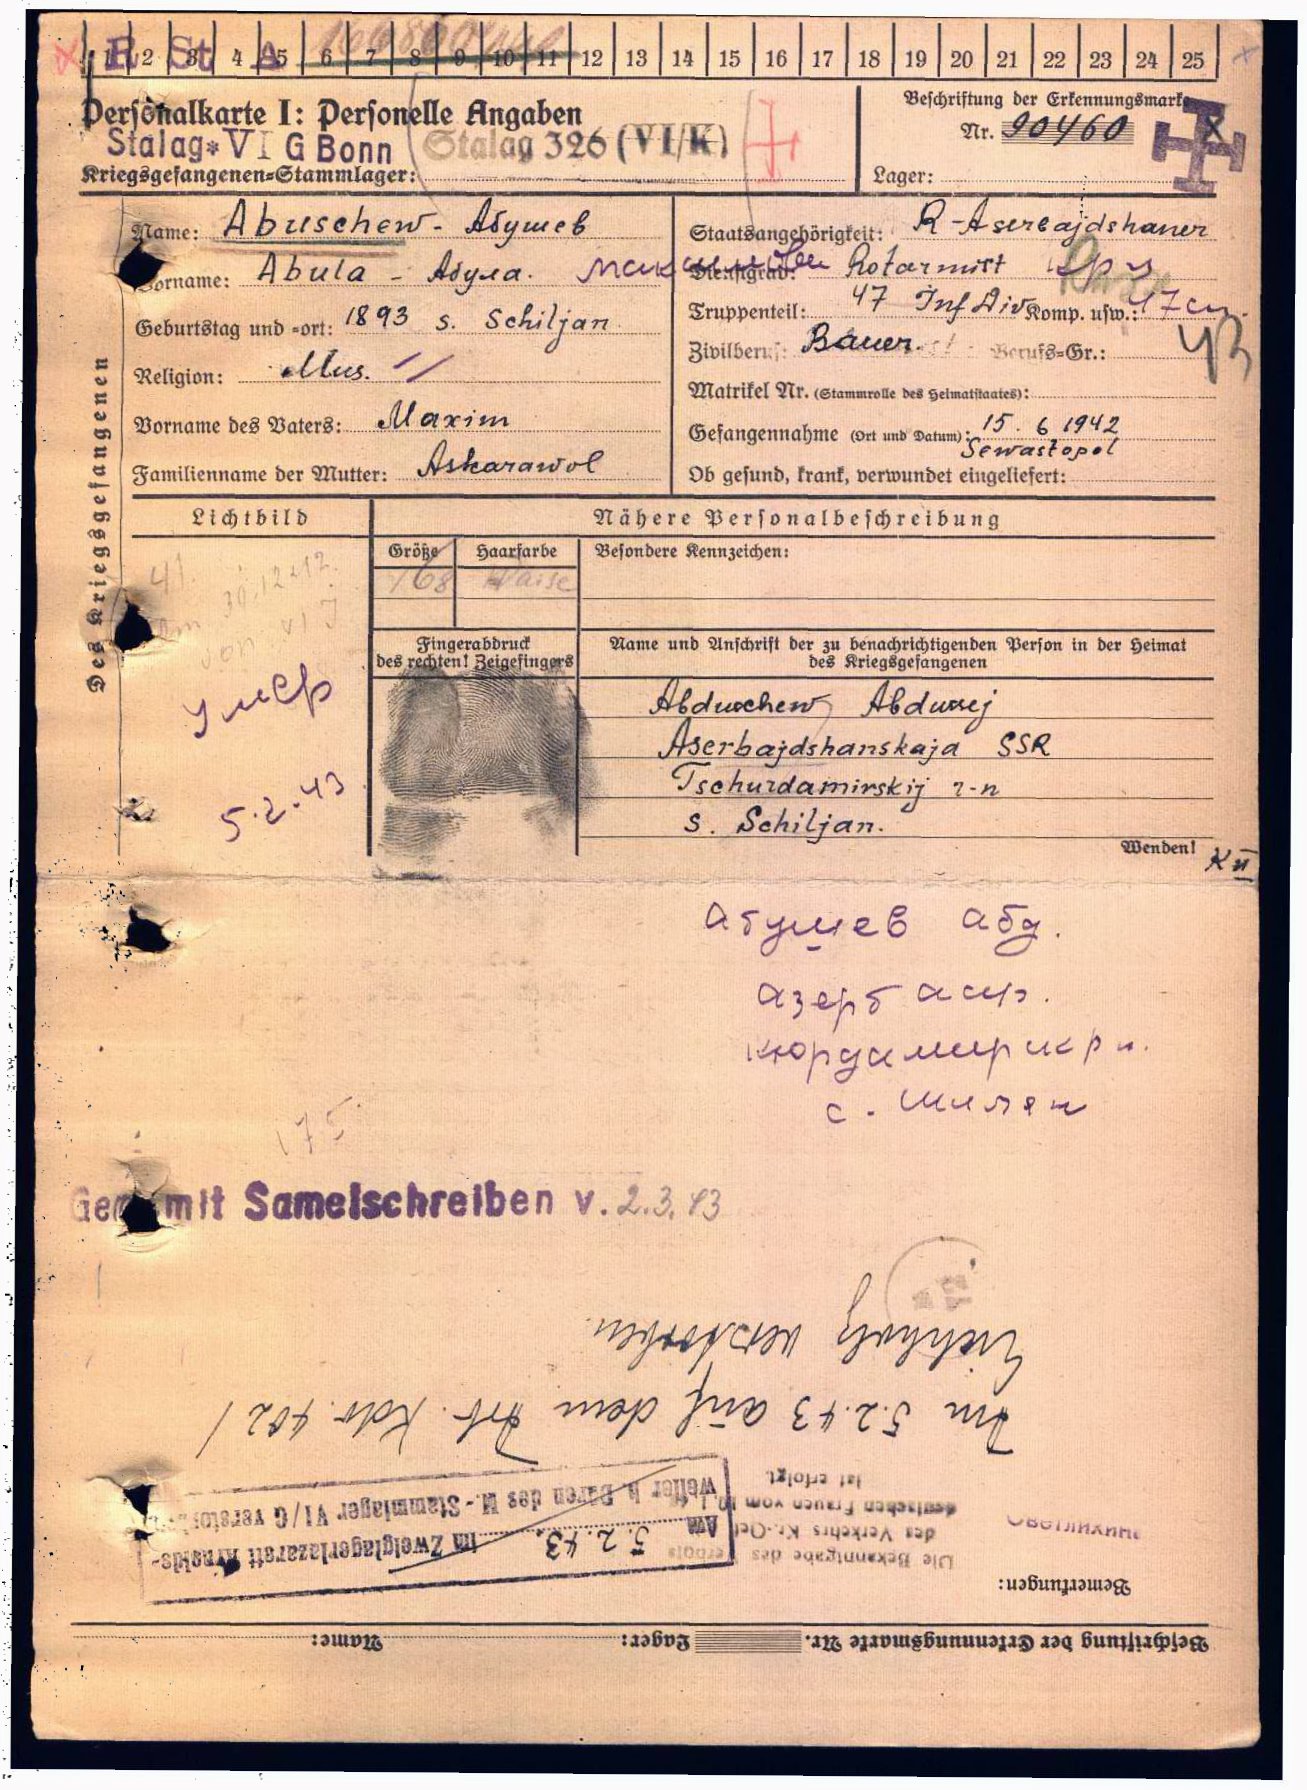 R St A
1 2 3 4 5 6 7 8 9 10 11 12 13 14 15 16 17 18 19 20 21 22 23 24 25
Personalkarte I: Personelle Angaben
Stalag VI G Bonn Stalag 326 (VI/K)
Kriegsgefangenen-Stammlager:
Beschriftung der Erkennungsmarke
Nr. 90460
Lager:
Des Kriegsgefangenen
Name: Abuschew - Абушев
Vorname: Abula - Абула.
Geburtstag und -ort: 1893 s. Schiljan
Religion: Mus.
Vorname des Vaters: Maxim
Familienname der Mutter: Askarawol
Staatsangehörigkeit: R-Aserbajdshaner
Dienstgrad: Rotarmist
Truppenteil: 47 Inf Div Komp. usw.:
Zivilberuf: Bauer. Berufs-Gr.:
Matrikel Nr. (Stammrolle des Heimatstaates):
Gefangennahme (Ort und Datum): 15. 6 1942
Sewastopol
Ob gesund, krank, verwundet eingeliefert:
Lichtbild
Nähere Personalbeschreibung
Größe Haarfarbe Besondere Kennzeichen:
168
Fingerabdruck
des rechten! Zeigefingers
Name und Anschrift der zu benachrichtigenden Person in der Heimat
des Kriegsgefangenen
Abduschew Abdu
Aserbajdshanskaja SSR
Tschurdamirskij r-n
s. Schiljan.
Wenden!
умер
5.2.43
Абушев абд.
азерб асср.
кюрдамир
с. Шилян
175
mit Samelschreiben v. 2.3.43
Beschriftung der Erkennungsmarke Nr. Lager: Name:
Bemerkungen:
Die Bekanntgabe des
des Verkehrs Kr.-Gef.
deutschen Frauen vom
ist erfolgt
Am 5.2.43. im Zweiglagerlazarett Arnolds-
weiler b. Düren des M.-Stammlager VI/G verstorben
Am 5.2.43 auf dem Arb. Kdo. 402/
Eichholz verstorben